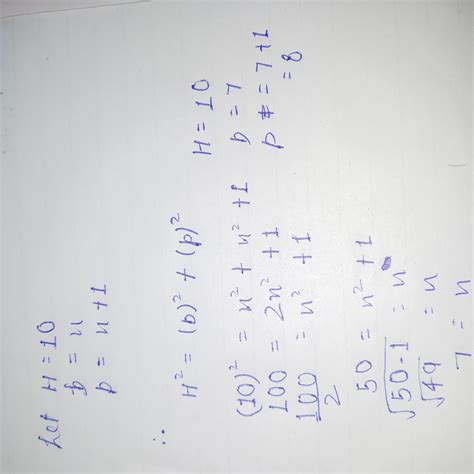 Let H = 10
b = n
p = n + 1
∴ H² = (b)² + (p)²
(10)² = n² + n² + 1
100 = 2n² + 1
100/2 = n² + 1
50 = n² + 1
√50-1 = n
√49 = n
7 = n
H = 10
b = 7
p = 7 + 1
= 8